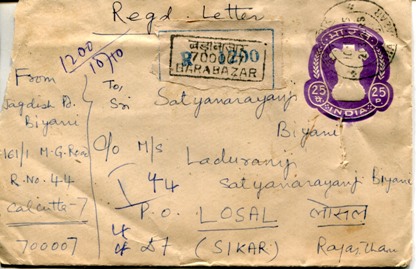 Regd. Letter
1200
15/10
बड़ाबाजार
R 1200
700007
BARABAZAR
भारत
25 INDIA 25
From
Jagdish Pd.
Biyani
161/1 M.G. Road
R. No. 44
Calcutta-7
700007
To,
Sri Satyanarayanji
Biyani
C/o M/s Laduramji
Satyanarayanji Biyani
44
P.O. LOSAL लोसल
(SIKAR) Rajasthan